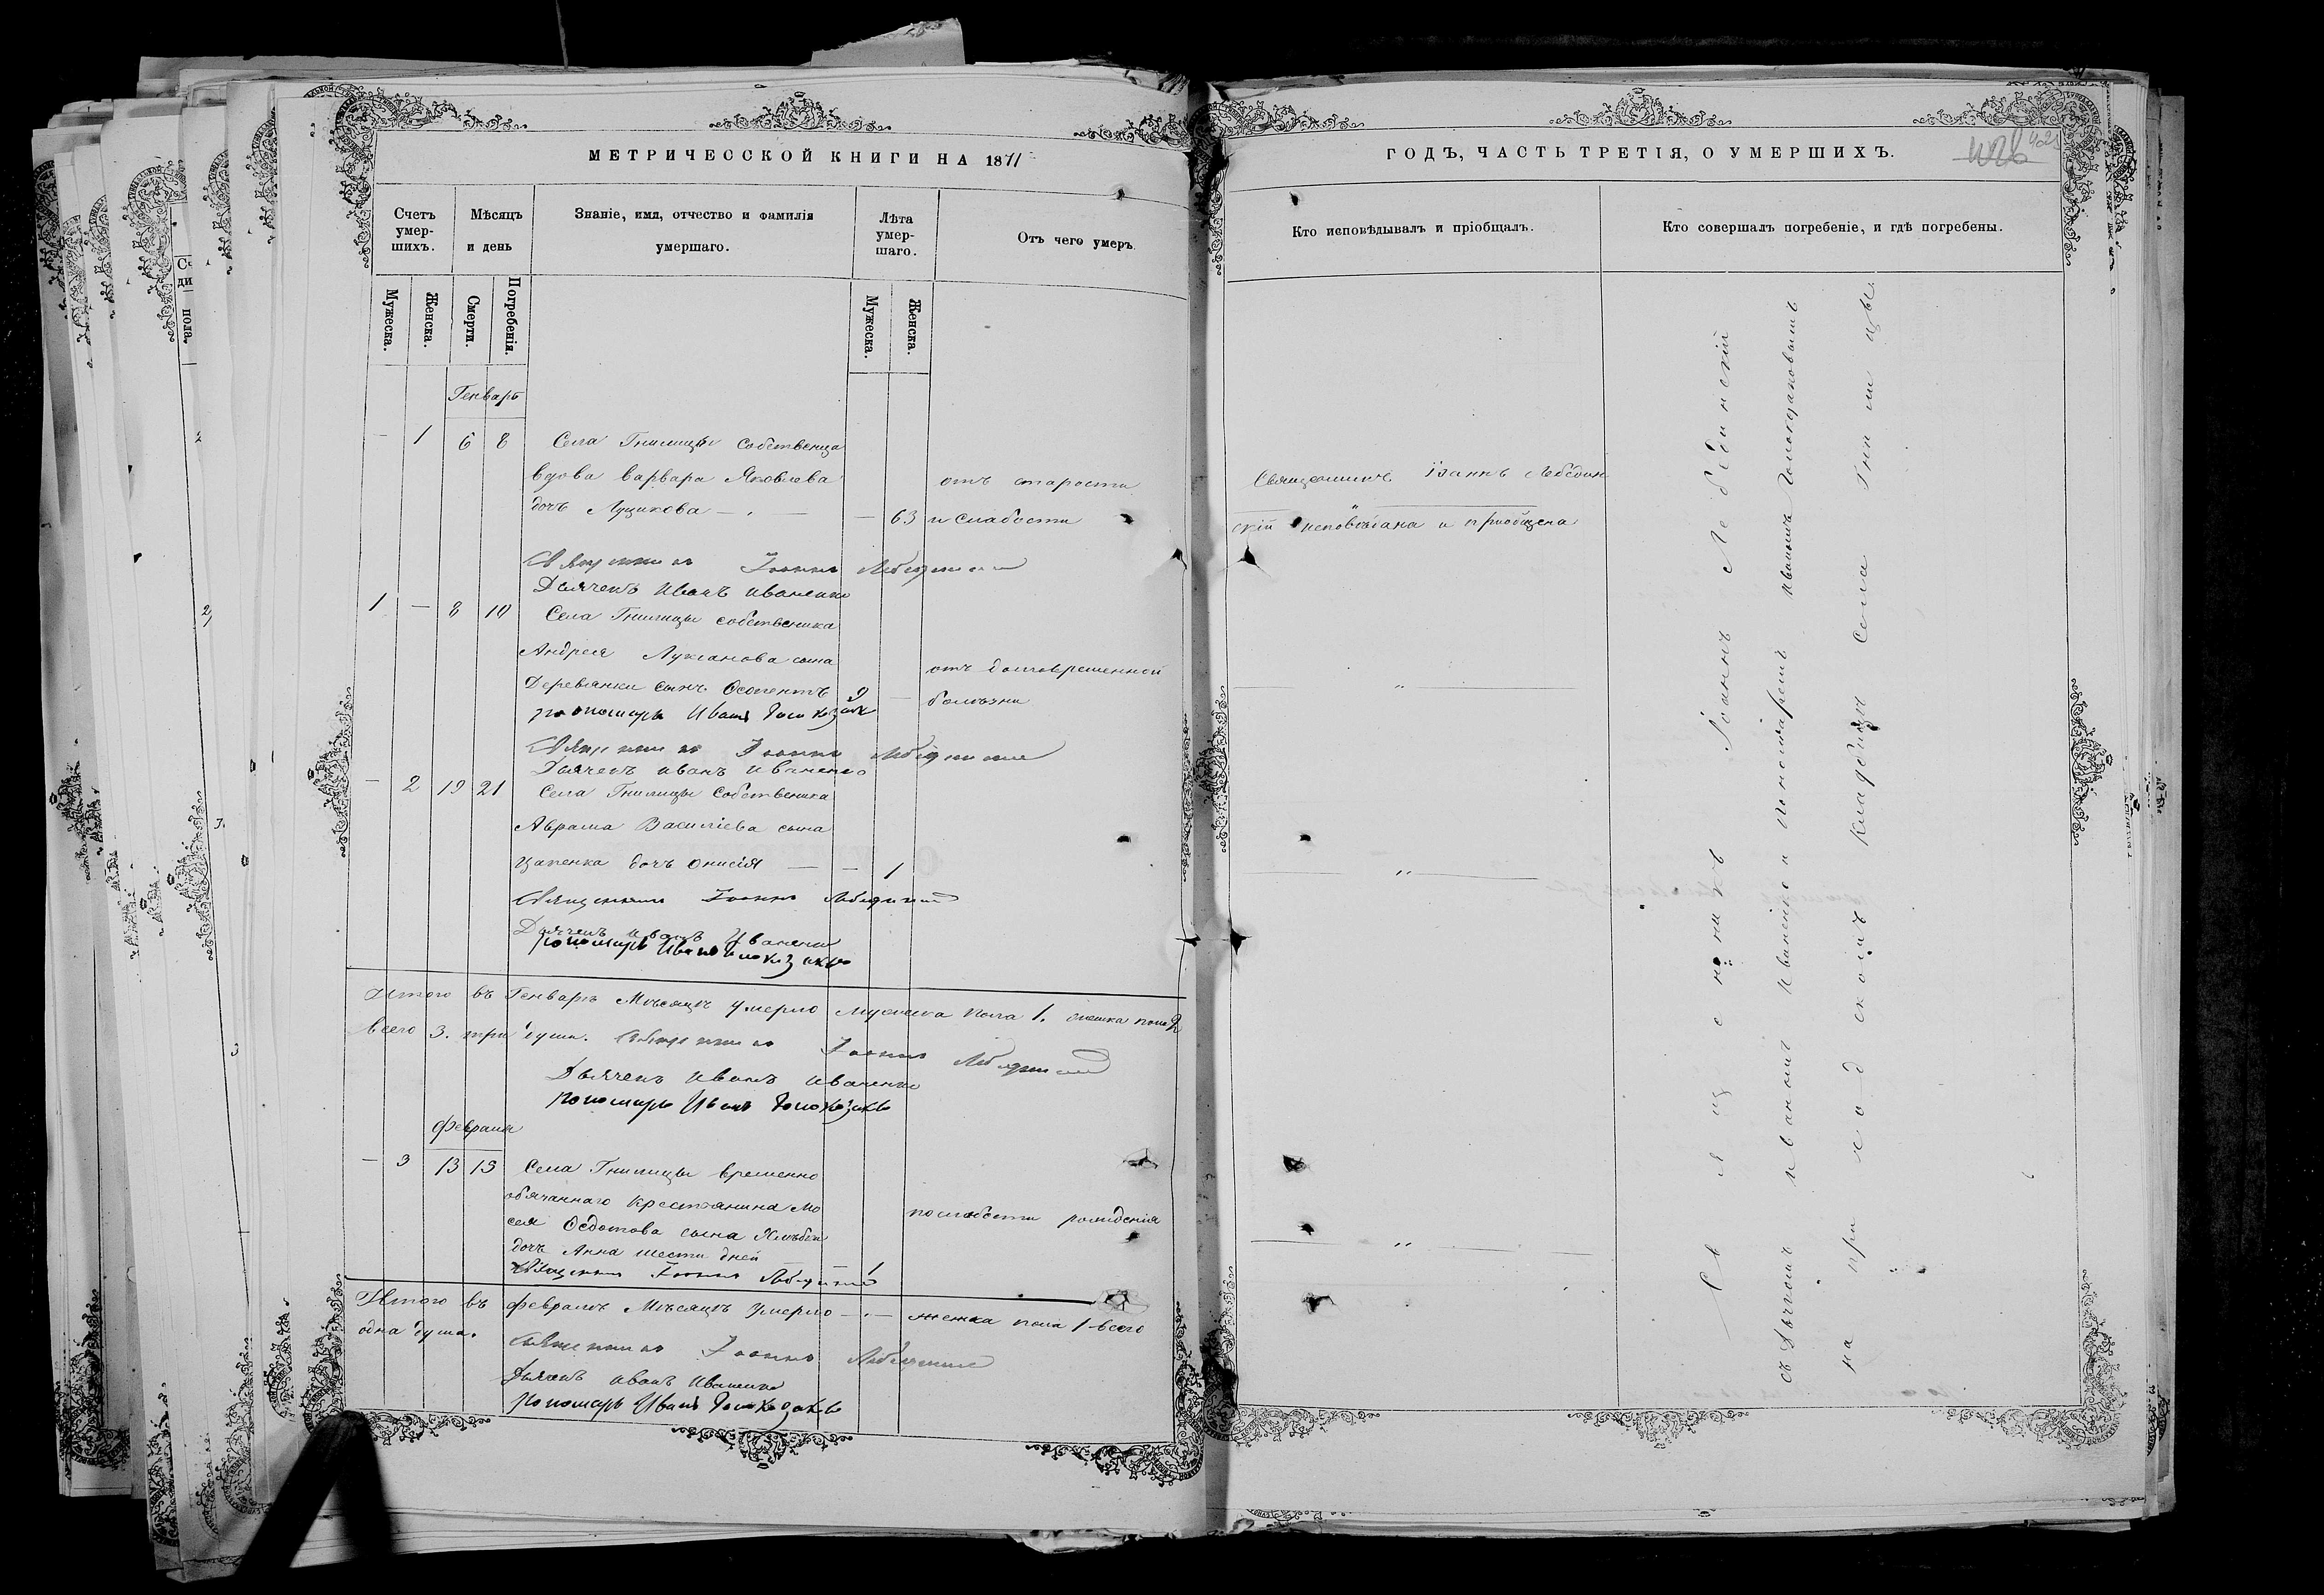 МЕТРИЧЕССКОЙ КНИГИ НА 1871
Счетъ умер-
шихъ.
Мѣсяцъ
и день
Званіе, имя, отчество и фамилія
умершаго.
Лѣта
умер-
шаго.
Отъ чего умеръ.
Мужеска.
Женска.
Смерти.
Погребенія.
Мужеска.
Женска.
Генварь
— 1 6 8 Села Гнилицы собственица
вдова варвара Яковлева отъ старости
дочъ Луцикова — . — — 63 и слабости
Священникъ Іоаннъ Лебединскій
Дьячекъ Иванъ Иваненко
1 — 8 10 Села Гнилицы собственика
Андрея Лукіанова сына отъ долговременной
Деревянки сынъ 9 — болѣзни
пономарь Иванъ
Священникъ Іоаннъ Лебединскій
Дьячекъ иванъ иваненко
— 2 19 21 Села Гнилицы Собственика
Аврама Василіева сына
Цапенка дочъ Онисія — — 1
Священникъ Іоаннъ Лебединскій
Дьячекъ иванъ Иваненко
пономарь Иванъ
Итого въ Генварѣ Мѣсяцѣ умерло мужеска пола 1. женска пола 2
Всего 3. три души. Священникъ Іоаннъ Лебединскій
Дьячекъ Иванъ иваненко
пономарь Иванъ
Февраля
— 3 13 15 Села Гнилицы временно
обязаннаго Крестьянина Мо
сея Ѳедотова сына
дочъ Анна шести дней 1
по слабости рожденія
Священникъ Іоаннъ Лебединскій
Итого въ февралѣ Мѣсяцѣ умерло — . — женска пола 1 всего
одна душа.
Священникъ Іоаннъ Лебединскій
Дьячекъ иванъ Иваненко
пономарь Иванъ
ГОДЪ, ЧАСТЬ ТРЕТІЯ, О УМЕРШИХЪ.
Кто исповѣдывалъ и пріобщалъ.
Кто совершалъ погребеніе, и гдѣ погребены.
Священникъ Іоаннъ Лебедин
скій исповѣдана и пріобщена
— „ —
— „ —
— „ —
Священникъ Іоаннъ Лебединскій
съ Дьячкомъ иваномъ Иваненко и пономаремъ иваномъ
на приходскомъ кладбищѣ Села Гнилицы.